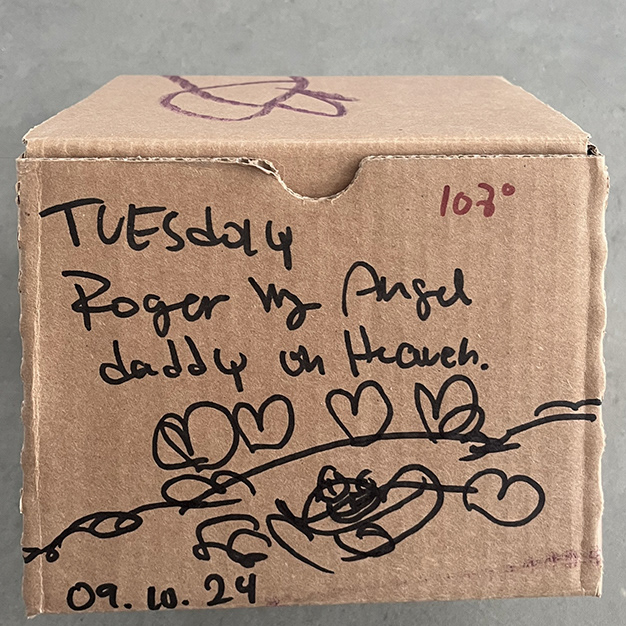 103°
TUESday
Roger my Angel
daddy in Heaven.
09.10.24